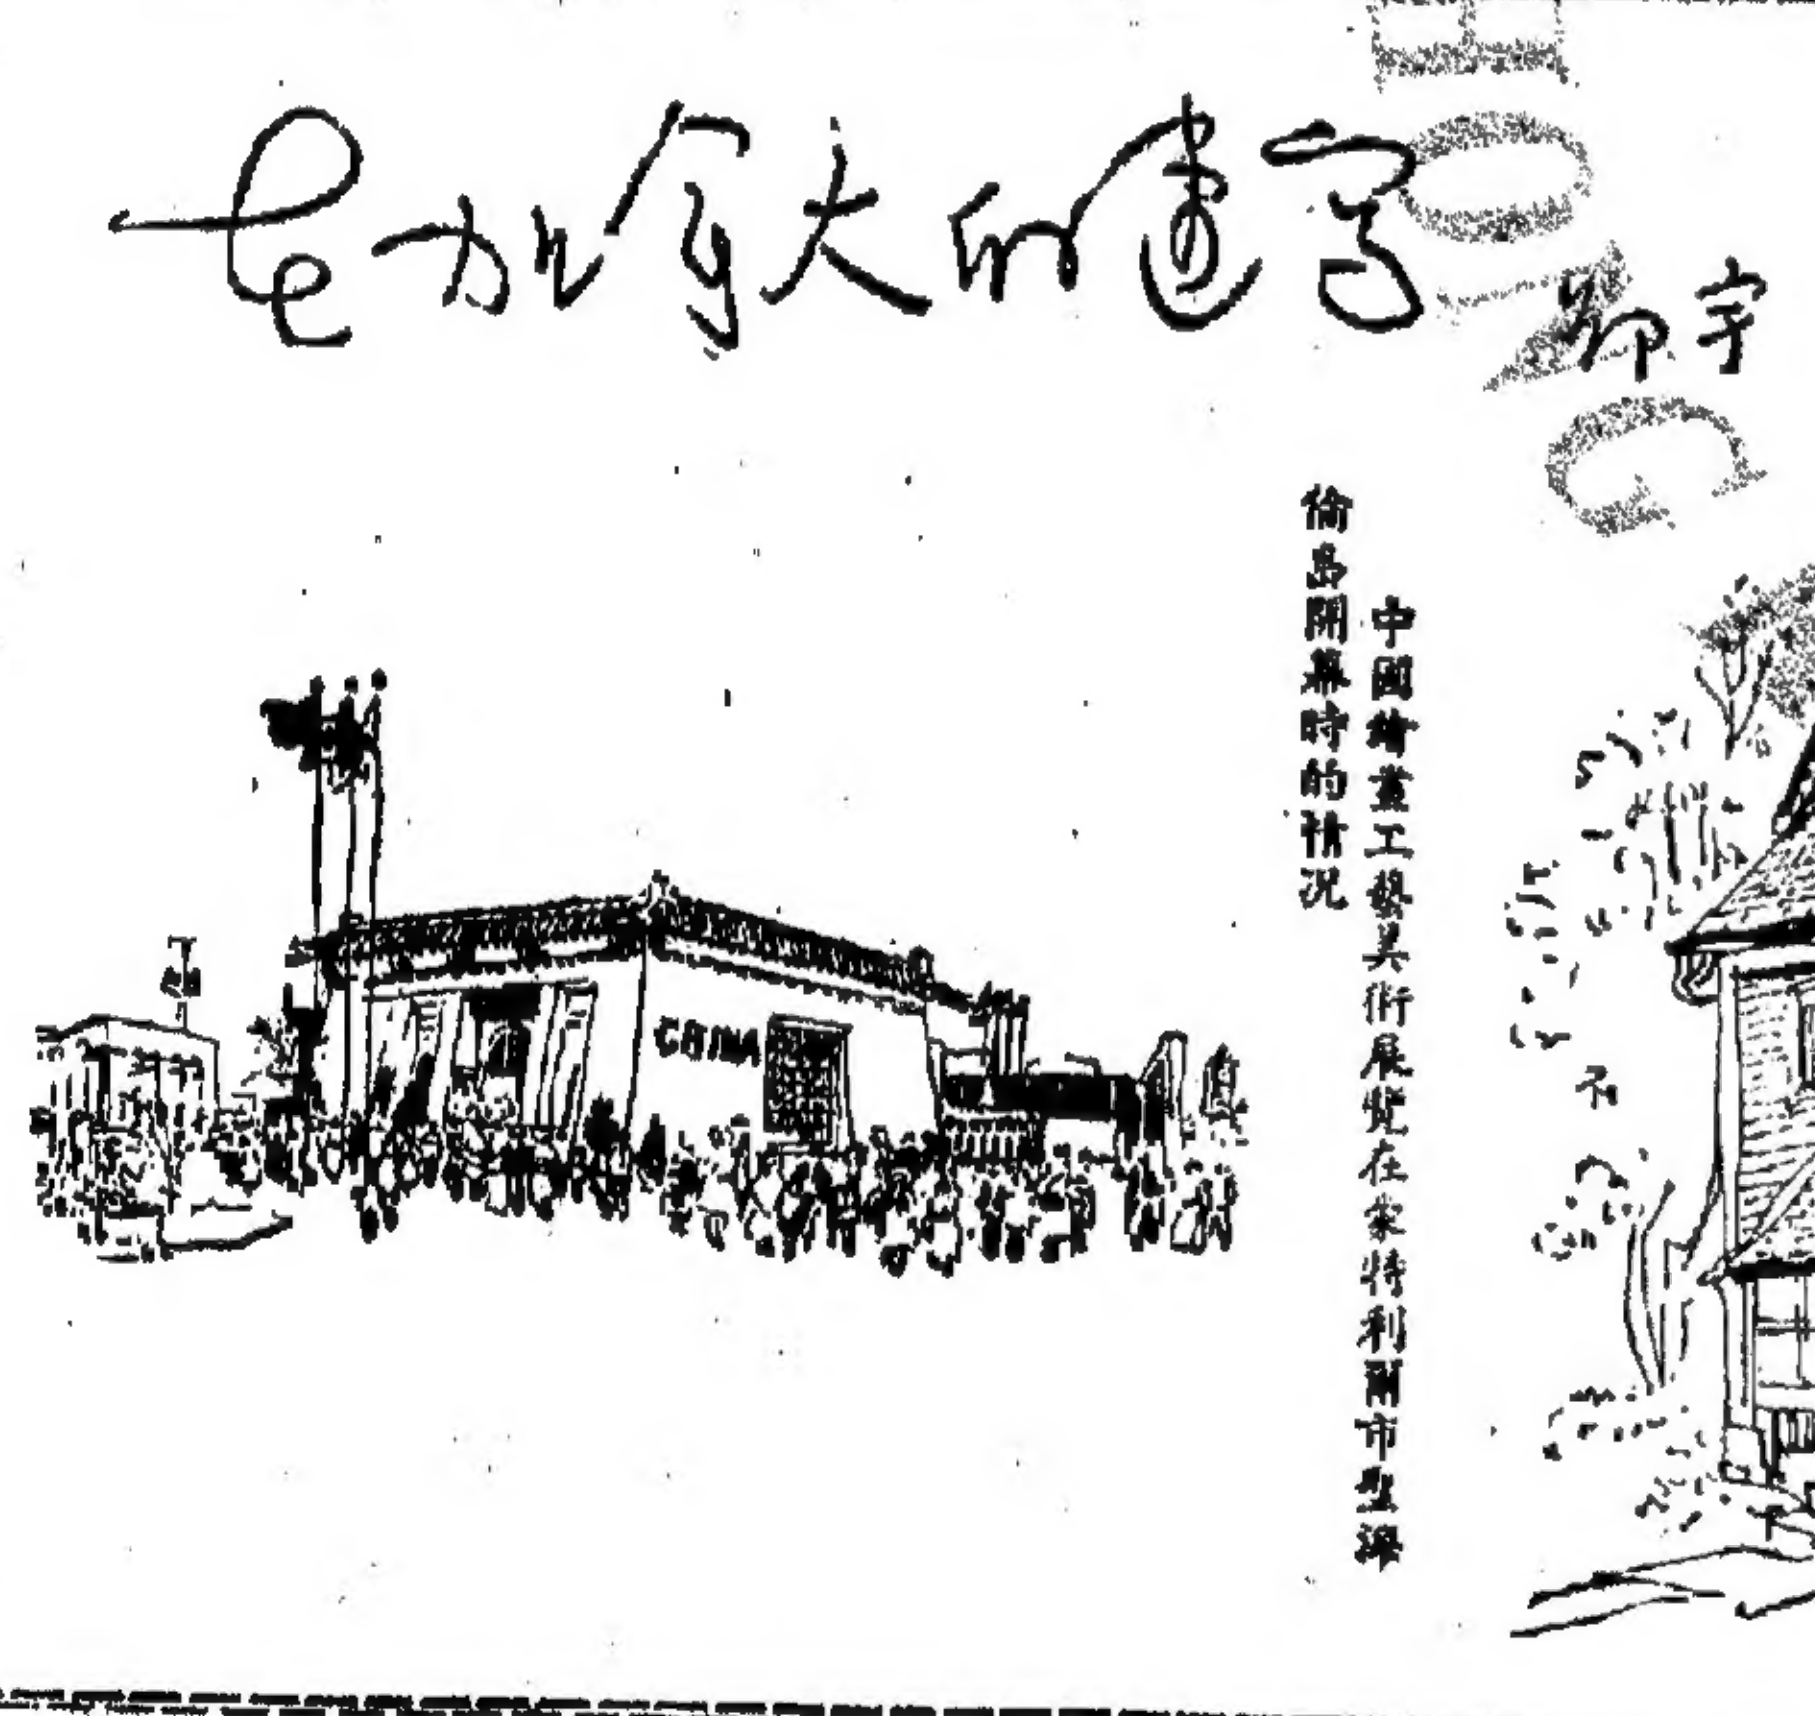 在加拿大的速写
邵宇
中國繪畫工藝美術展覽在蒙特利爾市聖海
倫島開幕時的情況
CHINA